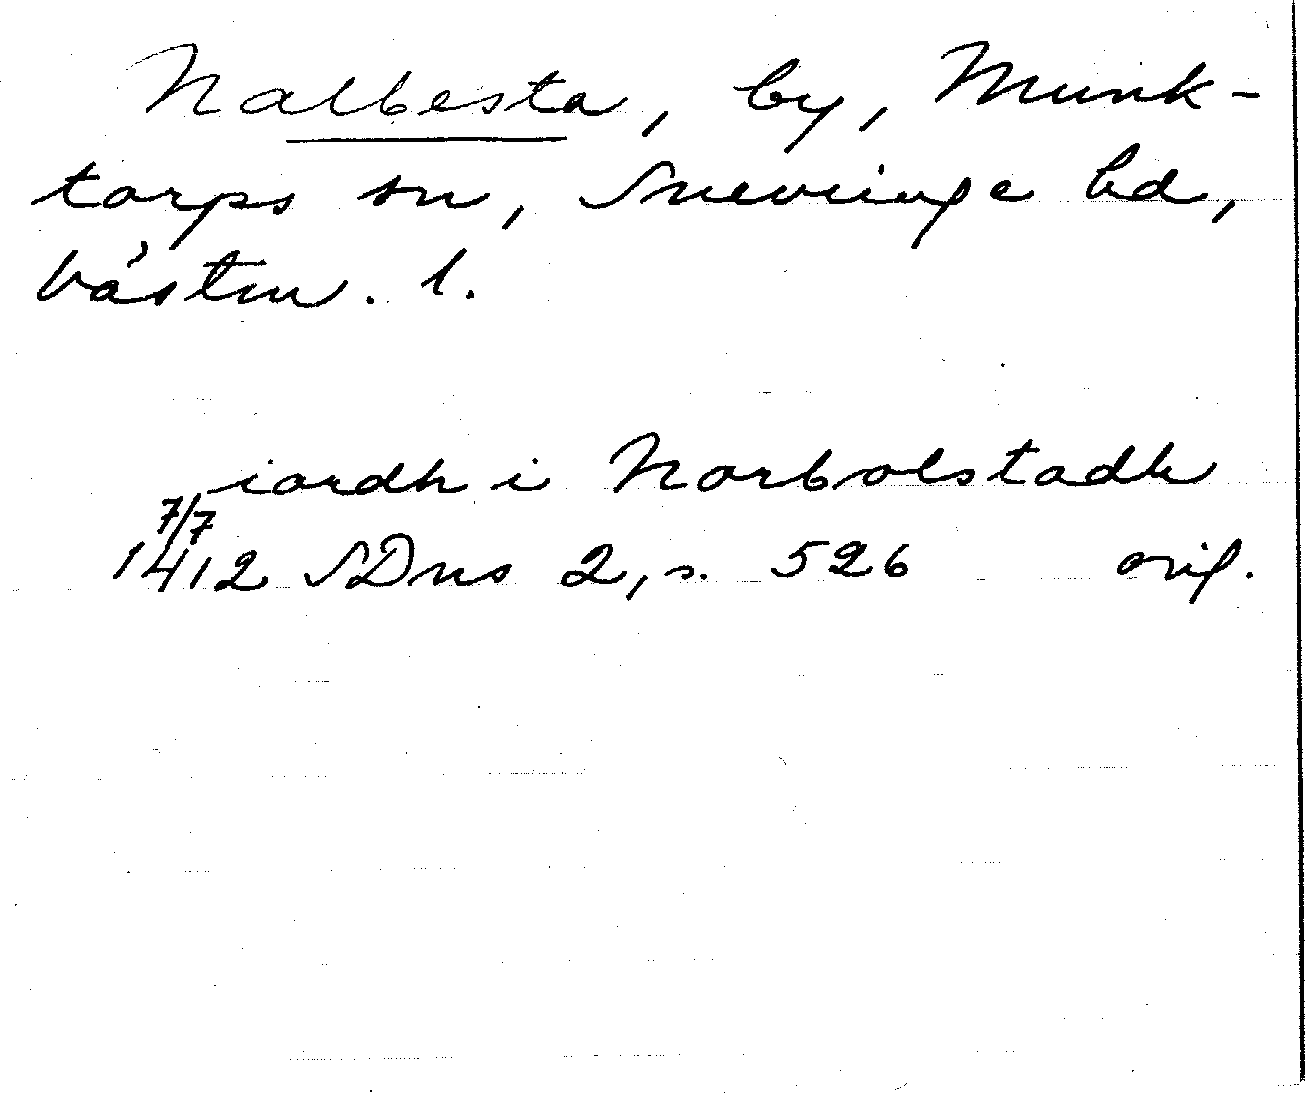 Nalbesta, by, Munk-
torps sn, Snevringe hd,
Västm. l.
iordh i Norbolstadh
7/7
1412 SDns 2, s. 526 orig.